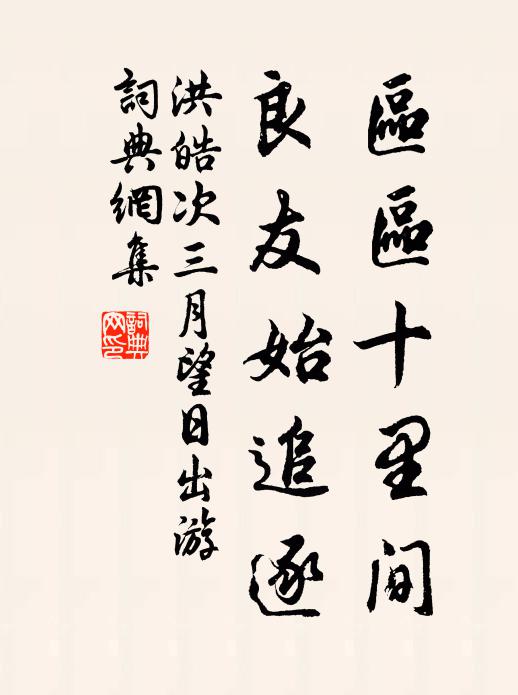 區區十里间
良友始追逐
洪皓次三月望日出游
詞典網集
詞典網印